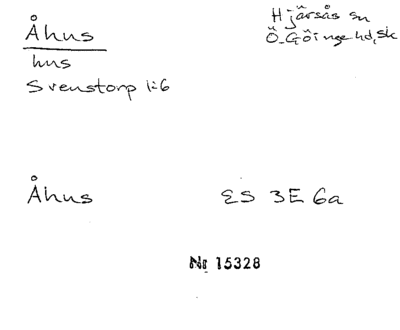 Åhus
hus
Svenstorp 1:6
Hjärsås sn
Ö. Göinge hd, Sk
Åhus
ES 3E 6a
Nr 15328